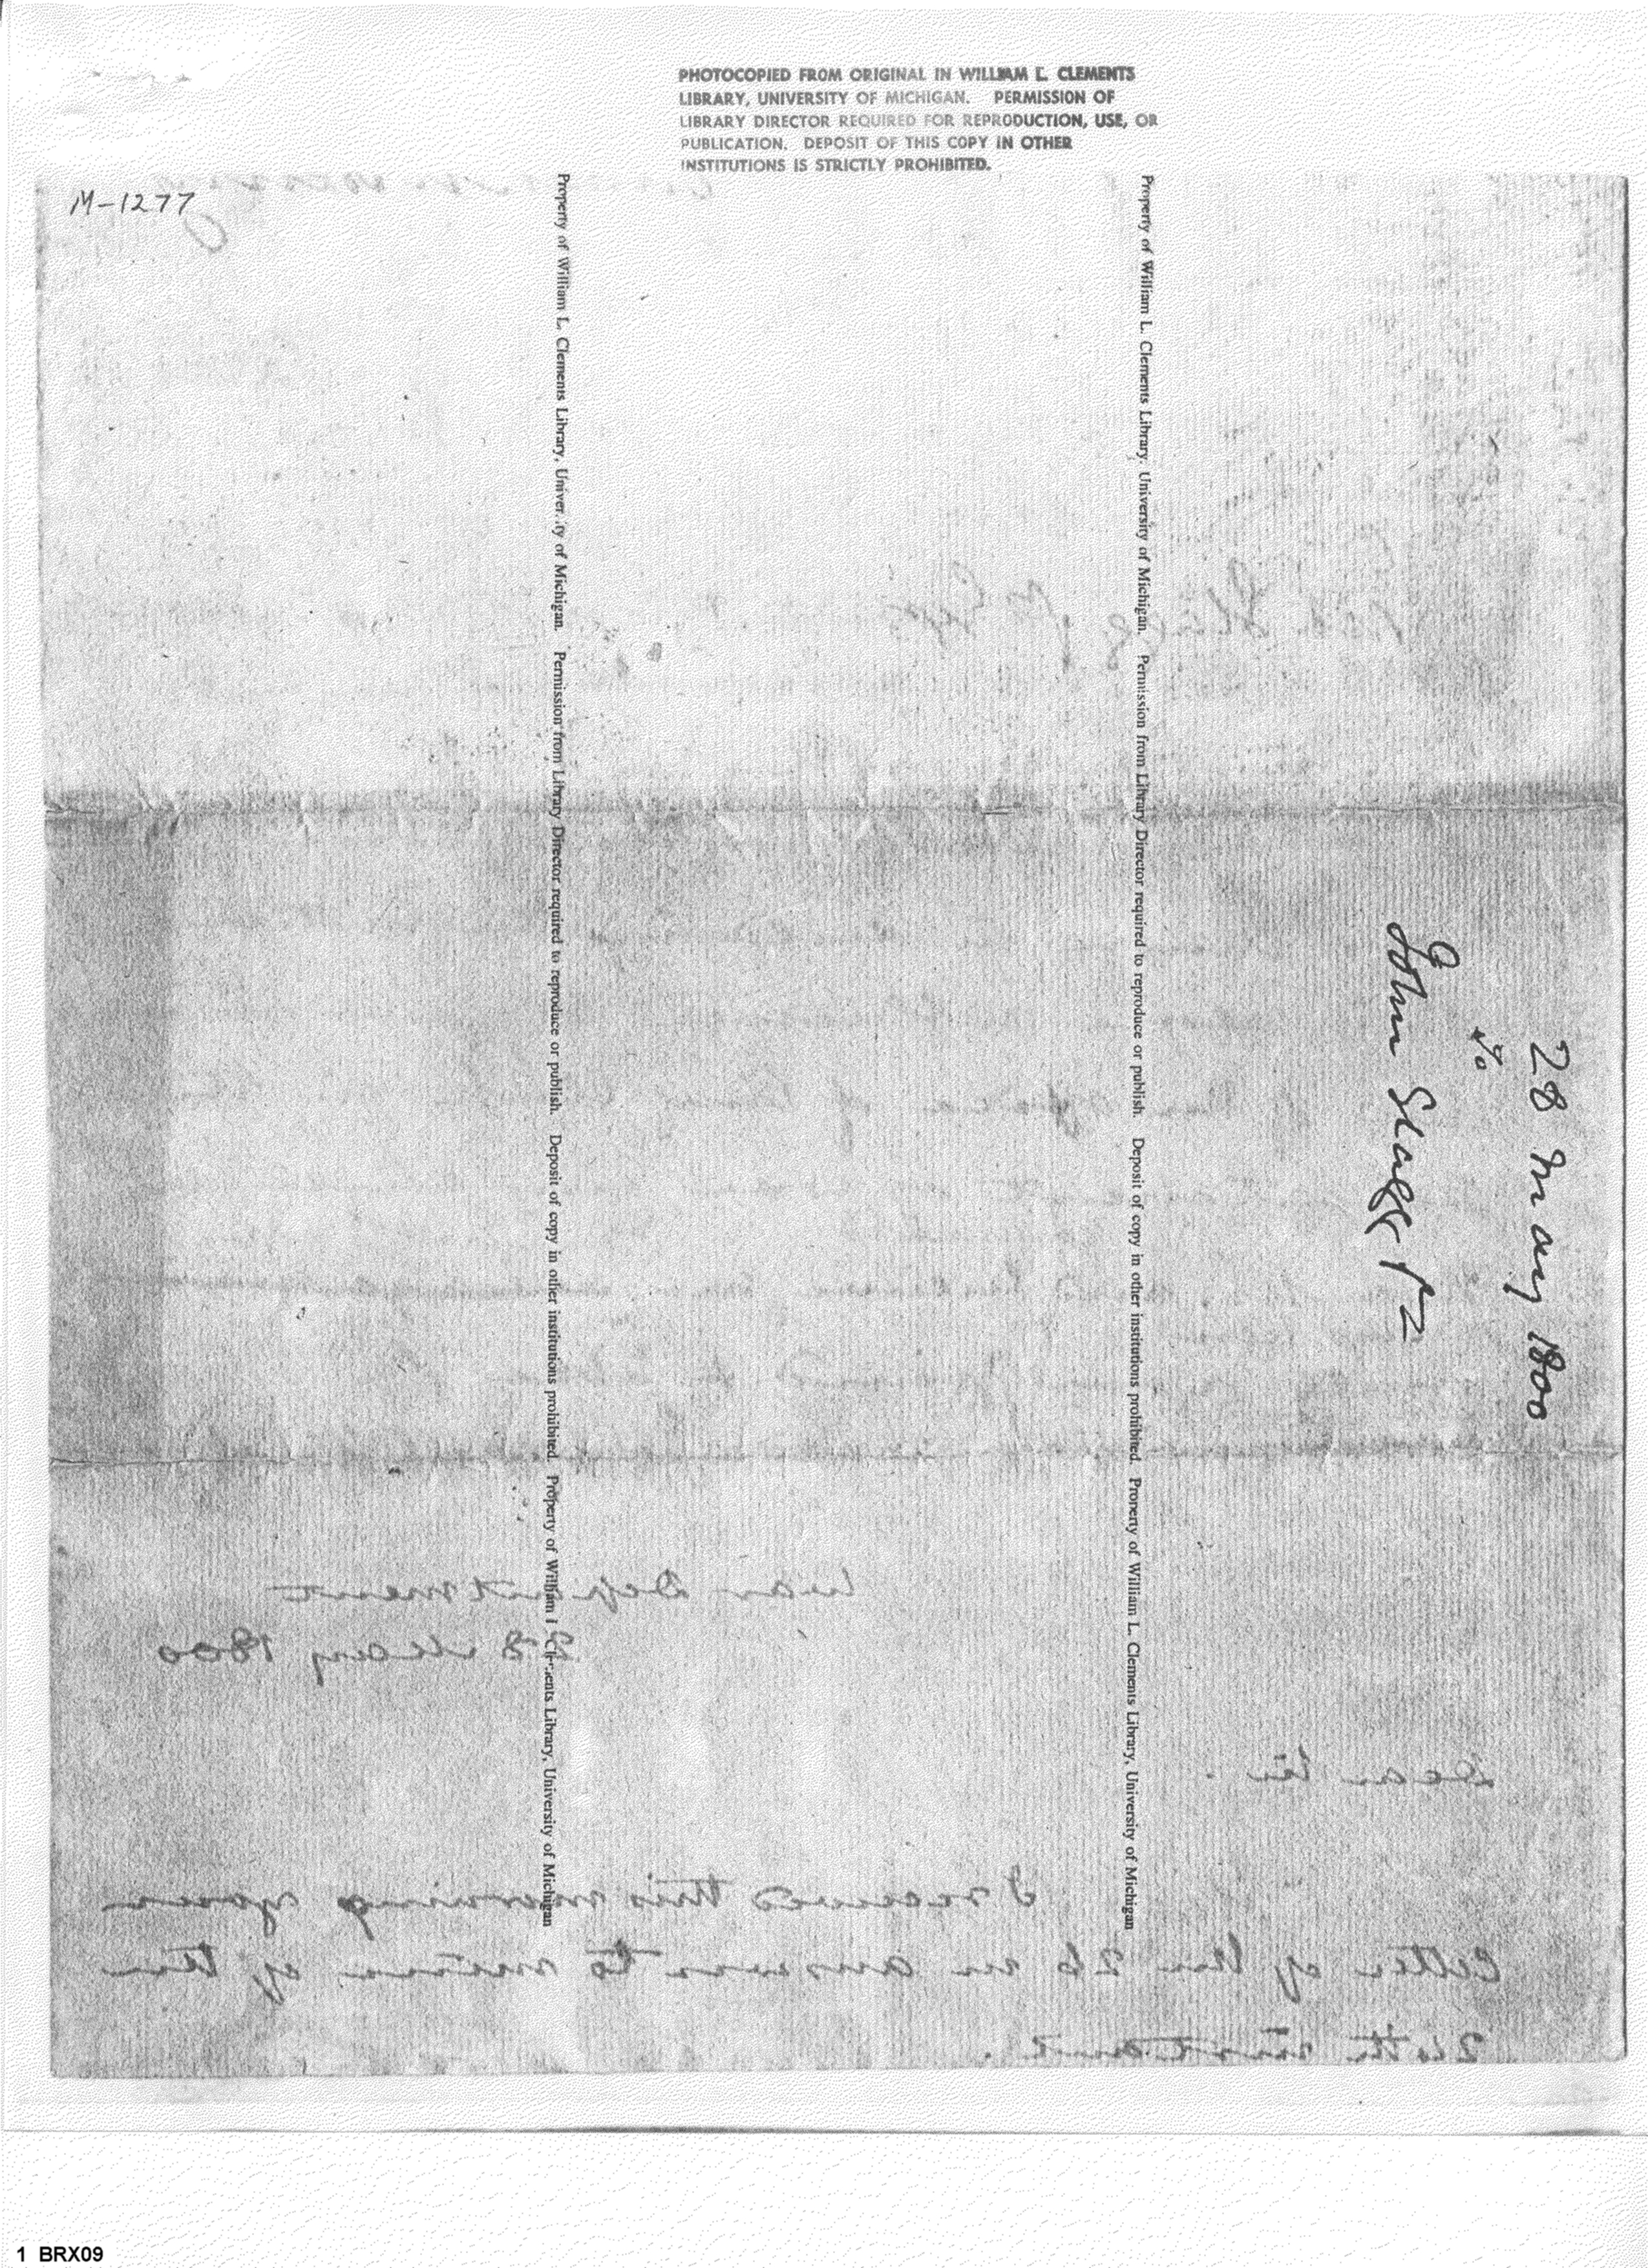 PHOTOCOPIED FROM ORIGINAL IN WILLIAM L. CLEMENTS
LIBRARY, UNIVERSITY OF MICHIGAN. PERMISSION OF
LIBRARY DIRECTOR REQUIRED FOR REPRODUCTION, USE, OR
PUBLICATION. DEPOSIT OF THIS COPY IN OTHER
INSTITUTIONS IS STRICTLY PROHIBITED.
M-1277
Property of William L. Clements Library, University of Michigan. Permission from Library Director required to reproduce or publish. Deposit of copy in other institutions prohibited. Property of William L. Clements Library, University of Michigan
Property of William L. Clements Library, University of Michigan. Permission from Library Director required to reproduce or publish. Deposit of copy in other institutions prohibited. Property of William L. Clements Library, University of Michigan
28 May 1800
to
John Stagg Jr
War Department
28 May 1800
Dear Sir
I received this morning your
letter of the 26 in answer to mine of the
24th instant.
1 BRX09